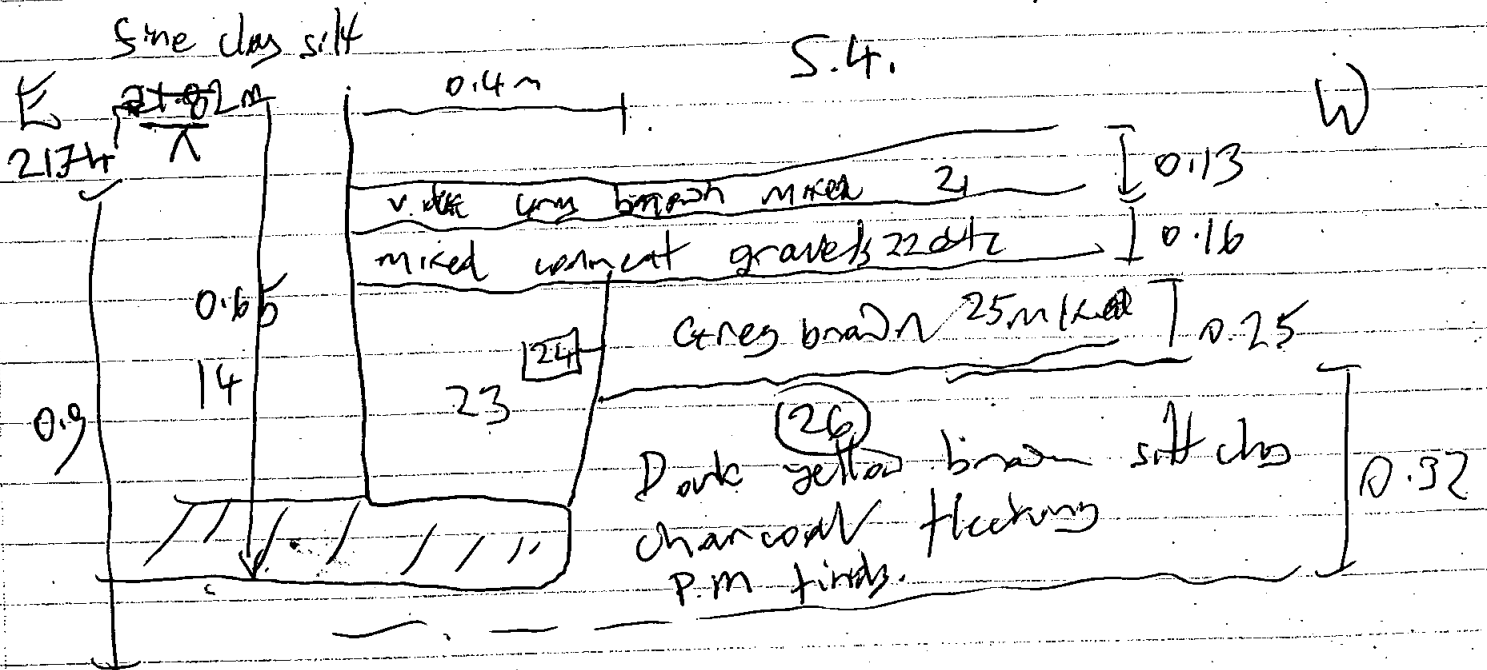 fine clay silt
S.4.
E 21.82m 0.4m W
2174
0.13
v. dark grey brown mixed 21
mixed cement gravels 22 0.16
0.65 Grey brown 25 mixed 0.25
24
14 23
0.9 26
Dark yellow brown silt clay 0.32
charcoal flecking
P.M finds.